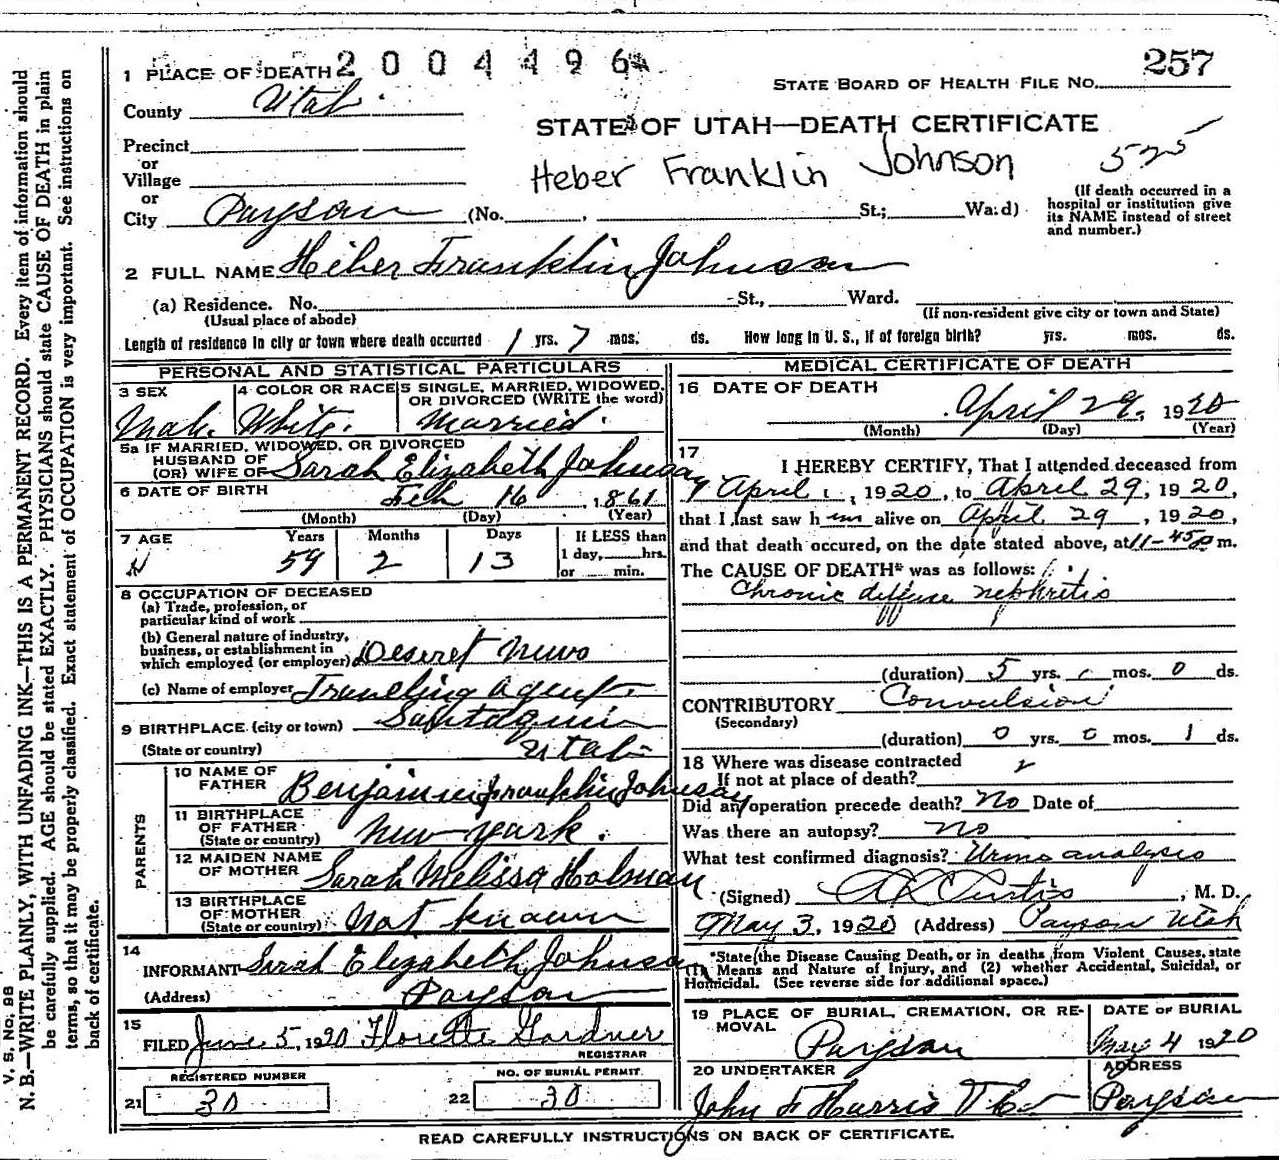 2004496
257
1 PLACE OF DEATH
STATE BOARD OF HEALTH FILE NO.
County Utah
STATE OF UTAH—DEATH CERTIFICATE
Precinct
or
Village
or
City Payson (No. , St.; Ward)
Heber Franklin Johnson
525
(If death occurred in a
hospital or institution give
its NAME instead of street
and number.)
2 FULL NAME Heber Franklin Johnson
(a) Residence. No. St., Ward.
(Usual place of abode)
(If non-resident give city or town and State)
Length of residence in city or town where death occurred 1 yrs. 7 mos. ds. How long in U. S., if of foreign birth? yrs. mos. ds.
PERSONAL AND STATISTICAL PARTICULARS
3 SEX
Male
4 COLOR OR RACE
White.
5 SINGLE, MARRIED, WIDOWED,
OR DIVORCED (WRITE the word)
Married.
5a IF MARRIED, WIDOWED, OR DIVORCED
HUSBAND OF
(OR) WIFE OF Sarah Elizabeth Johnson
6 DATE OF BIRTH Feb 16, 1861
(Month) (Day) (Year)
7 AGE Years Months Days If LESS than
59 2 13 1 day, hrs.
or min.
8 OCCUPATION OF DECEASED
(a) Trade, profession, or
particular kind of work
(b) General nature of industry,
business, or establishment in
which employed (or employer) Deseret News
(c) Name of employer Traveling agent.
9 BIRTHPLACE (city or town) Santaquin
(State or country) Utah
PARENTS
10 NAME OF
FATHER Benjamin Franklin Johnson
11 BIRTHPLACE
OF FATHER
(State or country) New York.
12 MAIDEN NAME
OF MOTHER Sarah Melissa Holman
13 BIRTHPLACE
OF MOTHER
(State or country) Not known
14
INFORMANT Sarah Elizabeth Johnson
(Address) Payson
15
FILED June 5, 1920 Florette Gardner
REGISTRAR
REGISTERED NUMBER
21 30
NO. OF BURIAL PERMIT.
22 30
MEDICAL CERTIFICATE OF DEATH
16 DATE OF DEATH
April 29, 1920
(Month) (Day) (Year)
17
I HEREBY CERTIFY, That I attended deceased from
9 April, 1920, to April 29, 1920,
that I last saw him alive on April 29, 1920,
and that death occured, on the date stated above, at 11-45 p m.
The CAUSE OF DEATH* was as follows:
Chronic diffuse nephritis
(duration) 5 yrs. 0 mos. 0 ds.
CONTRIBUTORY Convulsion
(Secondary)
(duration) 0 yrs. 0 mos. 1 ds.
18 Where was disease contracted
If not at place of death?
Did an operation precede death? No Date of
Was there an autopsy? No
What test confirmed diagnosis? Urine analysis
(Signed) A L Curtis, M. D.
May 3, 1920 (Address) Payson Utah
*State the Disease Causing Death, or in deaths from Violent Causes, state
(1) Means and Nature of Injury, and (2) whether Accidental, Suicidal, or
Homicidal. (See reverse side for additional space.)
19 PLACE OF BURIAL, CREMATION, OR RE-
MOVAL Payson
DATE OF BURIAL
May 4 1920
20 UNDERTAKER
John F Harris & Co
ADDRESS
Payson
READ CAREFULLY INSTRUCTIONS ON BACK OF CERTIFICATE.
V. S. No. 88
N. B.—WRITE PLAINLY, WITH UNFADING INK—THIS IS A PERMANENT RECORD. Every item of information should
be carefully supplied. AGE should be stated EXACTLY. PHYSICIANS should state CAUSE OF DEATH in plain
terms, so that it may be properly classified. Exact statement of OCCUPATION is very important. See instructions on
back of certificate.